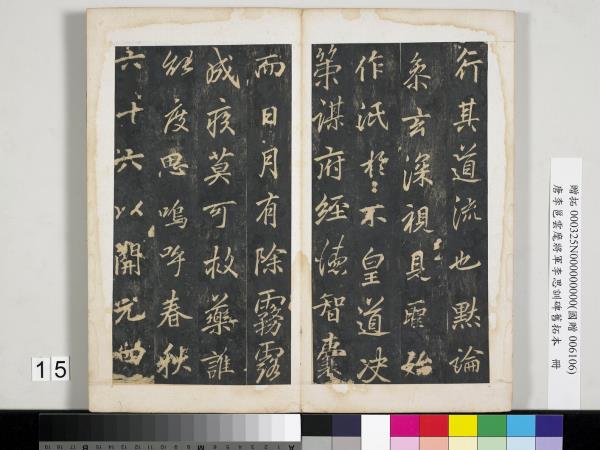 行其道流也默論
氣玄深視見靈始
作泯於不皇道決
策謀府經德智囊
而日月有除霧露
成疾莫可救藥誰
能度思嗚呼春秋
六十六以開元
贈拓 000325N000000000(國贈 006106)
唐李邕雲麾將軍李思訓碑舊拓本 冊
15